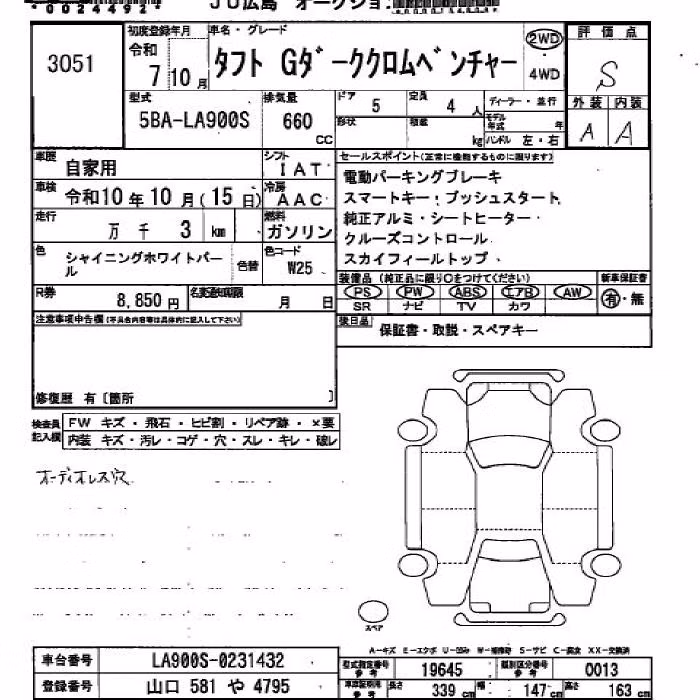 0024492
JU広島 オークション
3051
初度登録年月
令和
7 10月
車名・グレード
タフト Gダーククロムベンチャー
2WD
4WD
評価点
S
外装 内装
A A
型式
5BA-LA900S
排気量
660
CC
ドア 5
定員 4 人
ディーラー・並行
形状
積載 kg
モデル年式 年
ハンドル 左・右
車歴
自家用
シフト
IAT
車検
令和10年10月(15日)
冷房
AAC
走行
万 千 3 km
燃料
ガソリン
色
シャイニングホワイトパール
色替
色コード
W25
R券
8,850円
名変通知期限
月 日
セールスポイント(正常に機能するものに限ります)
電動パーキングブレーキ
スマートキー・プッシュスタート
純正アルミ・シートヒーター
クルーズコントロール
スカイフィールトップ
装備品(純正品に限り○をつけてください)
PS PW ABS エアB AW
SR ナビ TV カワ
新車保証書
有・無
後日品
保証書・取説・スペアキー
注意事項申告欄(不具合内容等は具体的に記入して下さい)
修復歴 有〔箇所 〕
検査員記入欄
FW キズ・飛石・ヒビ割・リペア跡・×要
内装 キズ・汚レ・コゲ・穴・スレ・キレ・破レ
オーディオレス穴
スペア
A-キズ E-エクボ U-凹み W-補修跡 S-サビ C-腐食 XX-交換済
車台番号
LA900S-0231432
登録番号
山口 581 や 4795
型式指定番号参考
19645
類別区分番号参考
0013
車庫証明用参考
長さ 339 cm 幅 147 cm 高さ 163 cm